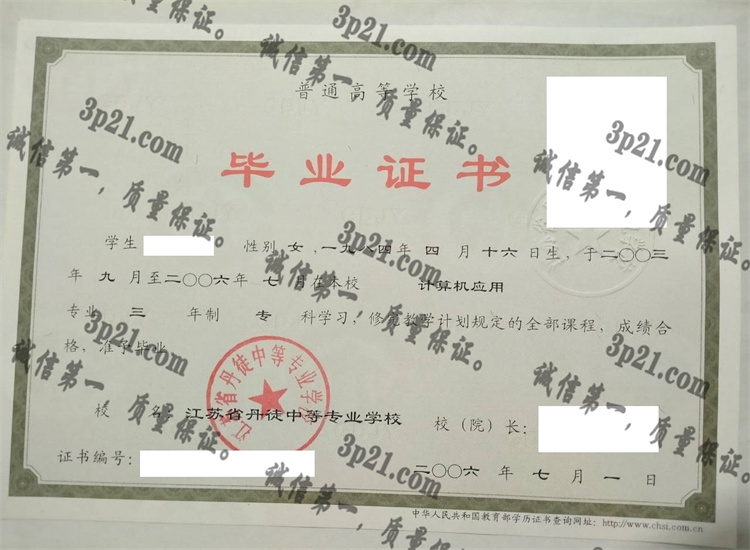 普通高等学校
毕业证书
学生 性别 女 , 一九八四年 四 月 十六 日生, 于二〇〇三
年 九 月至二〇〇六年 七 月在本校 计算机应用
专业 三 年制 专 科学习, 修完教学计划规定的全部课程, 成绩合
格, 准予毕业
江苏省丹徒中等专业学校
校 名: 江苏省丹徒中等专业学校 校(院)长:
证书编号: 二〇〇六 年 七 月 一 日
中华人民共和国教育部学历证书查询网址: http://www.chsi.com.cn
3p21.com
诚信第一,质量保证。
3p21.com
诚信第一,质量保证。
3p21.com
诚信第一,质量保证。
3p21.com
诚信第一,质量保证。
3p21.com
诚信第一,质量保证。
3p21.com
诚信第一,质量保证。
3p21.com
诚信第一,质量保证。
3p21.com
诚信第一,质量保证。